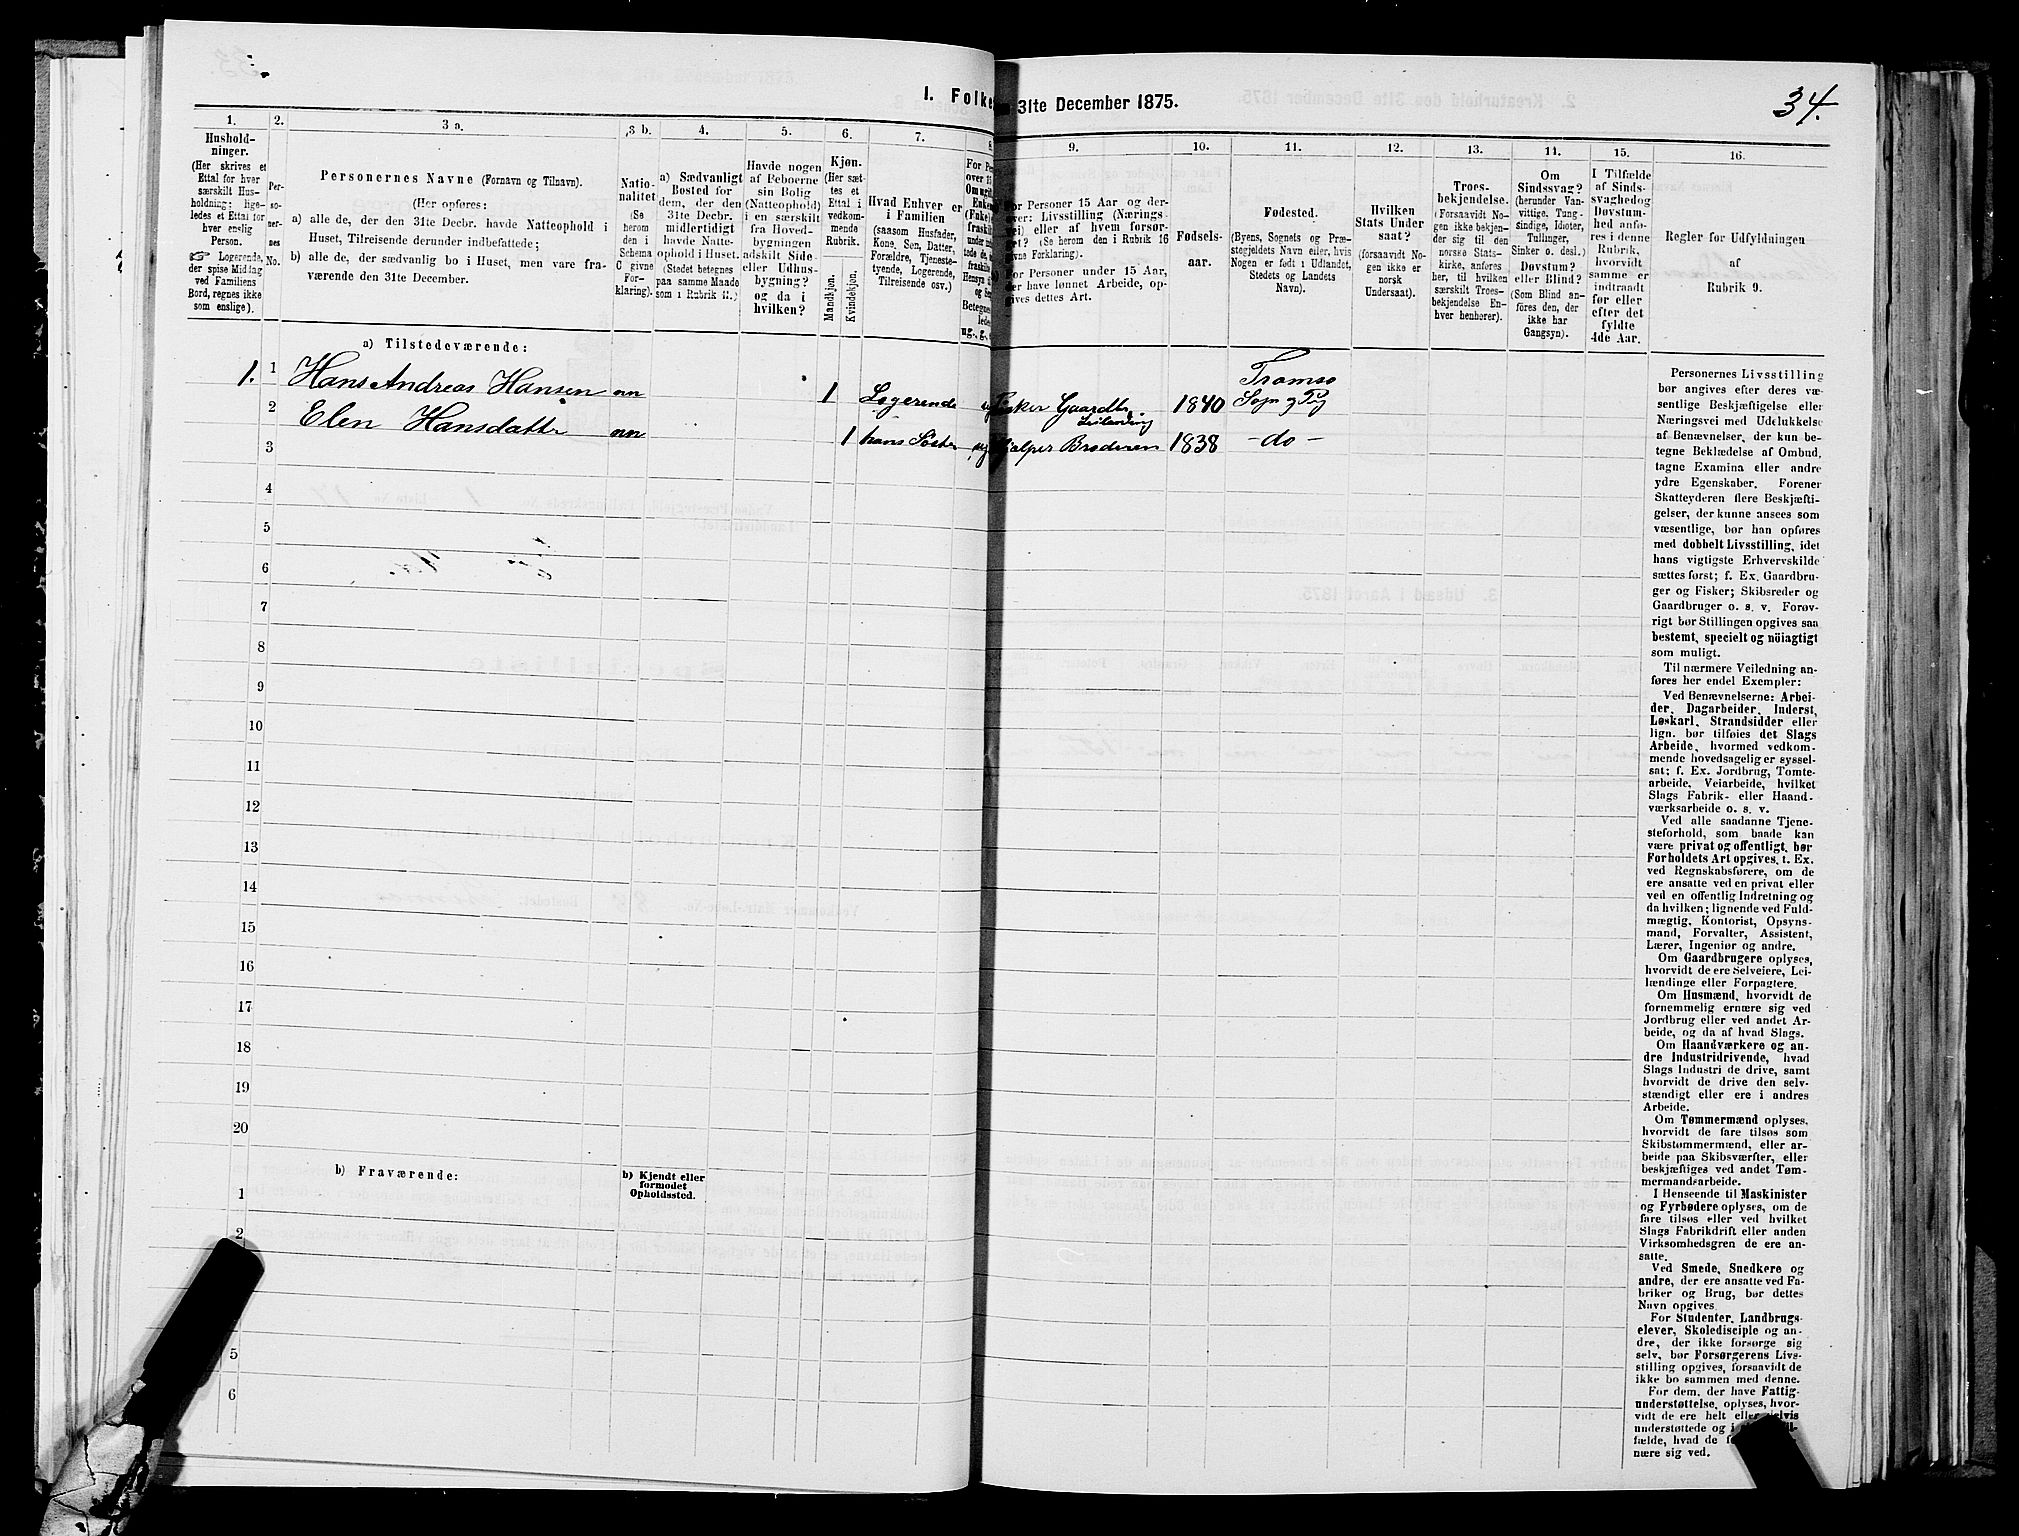 34.
1. Folke
31te December 1875.
1.
2.
3 a.
3 b.
4.
5.
6.
7.
8.
9.
10.
11.
12.
13.
14.
15.
16.
Hushold-
ninger.
(Her skrives et
Ettal for hver
særskilt Hus-
holdning; lige-
ledes et Ettal for
hver enslig
Person.
☞ Logerende,
der spise Middag
ved Familiens
Bord, regnes ikke
som enslige).
Per-
so-
ner-
nes
No.
Personernes Navne (Fornavn og Tilnavn).
(Her opføres:
a) alle de, der den 31te Decbr. havde Natteophold i
Huset, Tilreisende derunder indbefattede;
b) alle de, der sædvanlig bo i Huset, men vare fra-
værende den 31te December.
Natio-
nalitet
(Se
herom
den i
Schema
C givne
For-
klaring).
a) Sædvanligt
Bosted for
dem, der den
31te Decbr.
midlertidigt
havde Natte-
ophold i Huset.
(Stedet betegnes
paa samme Maade
som i Rubrik 11.)
Havde nogen
af Beboerne
sin Bolig
(Natteophold)
i en særskilt
fra Hoved-
bygningen
adskilt Side-
eller Udhus-
bygning?
og da i
hvilken?
Kjøn.
(Her sæt-
tes et
Ettal i
vedkom-
mende
Rubrik.
Mandkjøn.
Kvindekjøn.
Hvad Enhver er
i Familien
(saasom Husfader,
Kone, Søn, Datter,
Forældre, Tjeneste-
tyende, Logerende,
Tilreisende osv.)
For Personer 15 Aar og der-
over: Livsstilling (Nærings-
vei) eller af hvem forsør-
get? (Se herom den i Rubrik 16
givne Forklaring).
For Personer under 15 Aar,
der have lønnet Arbeide, op-
gives dettes Art.
Fødsels-
aar.
Fødested.
(Byens, Sognets og Præ-
stegjeldets Navn eller, hvis
Nogen er født i Udlandet,
Stedets og Landets
Navn).
Hvilken
Stats Under-
saat?
(forsaavidt No-
gen ikke er
norsk
Undersaat).
Troes-
bekjendelse.
(Forsaavidt No-
gen ikke bekjen-
der sig til den
norske Stats-
kirke, anføres
her, til hvilken
særskilt Troes-
bekjendelse En-
hver henhører).
Om
Sindssvag?
(herunder Van-
vittige, Tung-
sindige, Idioter,
Tullinger,
Sinker o. desl.)
Døvstum?
eller Blind?
(Som Blind an-
føres den, der
ikke har
Gangsyn).
I Tilfælde
af Sinds-
svaghed og
Døvstum-
hed anfø-
res i denne
Rubrik,
hvorvidt
samme er
indtraadt
før eller
efter det
fyldte
4de Aar.
Regler for Udfyldningen
af
Rubrik 9.
a) Tilstedeværende:
1. 1 Hans Andreas Hansen nn 1 Logerende ug Fisker Gaardbr. Leilending 1840 Tromsø Sogn og Pg
2 Elen Hansdatter nn 1 hans Søster ug hjælper Broderen 1838 - do -
3
4
5
6
7
8
9
10
11
12
13
14
15
16
17
18
19
20
b) Fraværende:
b) Kjendt eller
formodet
Opholdssted.
1
2
5
6
Personernes Livsstilling
bør angives efter deres væ-
sentlige Beskjæftigelse eller
Næringsvei med Udelukkelse
af Benævnelser, der kun be-
tegne Beklædelse af Ombud,
tagne Examina eller andre
ydre Egenskaber. Forener
Skatteyderen flere Beskjæfti-
gelser, der kunne ansees som
væsentlige, bør han opføres
med dobbelt Livsstilling, idet
hans vigtigste Erhvervskilde
sættes først; f. Ex. Gaardbru-
ger og Fisker; Skibsreder og
Gaardbruger o. s. v. Forøv-
rigt bør Stillingen opgives saa
bestemt, specielt og nöiagtigt
som muligt.
Til nærmere Veiledning an-
føres her endel Exempler:
Ved Benævnelserne: Arbei-
der, Dagarbeider, Inderst,
Løskarl, Strandsidder eller
lign. bør tilføies det Slags
Arbeide, hvormed vedkom-
mende hovedsagelig er syssel-
sat; f. Ex. Jordbrug, Tomte-
arbeide, Veiarbeide, hvilket
Slags Fabrik- eller Haand-
værksarbeide o. s. v.
Ved alle saadanne Tjene-
steforhold, som baade kan
være privat og offentligt, bør
Forholdets Art opgives, t. Ex.
ved Regnskabsførere, om de
ere ansatte ved en privat eller
ved en offentlig Indretning og
da hvilken; lignende ved Fuld-
mægtig, Kontorist, Opsyns-
mand, Forvalter, Assistent,
Lærer, Ingeniør og andre.
Om Gaardbrugere oplyses,
hvorvidt de ere Selveiere, Lei-
lændinge eller Forpagtere.
Om Husmænd, hvorvidt de
fornemmelig ernære sig ved
Jordbrug eller ved andet Ar-
beide, og da af hvad Slags.
Om Haandværkere og an-
dre Industridrivende, hvad
Slags Industri de drive, samt
hvorvidt de drive den selv-
stændigt eller ere i andres
Arbeide.
Om Tømmermænd oplyses,
hvorvidt de fare tilsøs som
Skibstømmermænd, eller ar-
beide paa Skibsværfter, eller
beskjæftiges ved andet Tøm-
mermandsarbeide.
I Henseende til Maskinister
og Fyrbødere oplyses, om de
fare tilsøs eller ved hvilket
Slags Fabrikdrift eller anden
Virksomhedsgren de ere an-
satte.
Ved Smede, Snedkere og
andre, der ere ansatte ved Fa-
briker og Brug, bør dettes
Navn opgives.
For Studenter, Landbrugs-
elever, Skoledisciple og an-
dre, der ikke forsørge sig
selv, bør Forsørgerens Livs-
stilling opgives, forsaavidt de
ikke bo sammen med denne.
For dem, der have Fattig-
understøttelse, oplyses, hvor-
vidt de ere helt eller delvis
understøttede og i
fælde, hvad de
nære sig ved.